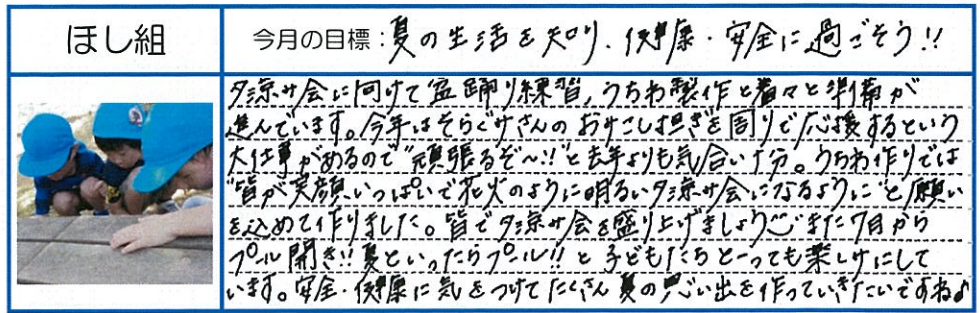 ほし組
今月の目標：夏の生活を知り、健康・安全に過ごそう!!
夕涼み会に向けて盆踊り練習、うちわ製作と着々と準備が
進んでいます。今年はそらぐみさんのおみこし担ぎを周りで応援するという
大仕事があるので"頑張るぞ〜!!"と去年よりも気合い十分。うちわ作りでは
"皆が笑顔いっぱいで花火のように明るい夕涼み会になるように"と願い
を込めて作りました。皆で夕涼み会を盛り上げましょう♡また7月から
プール開き!!夏といったらプール!!と子どもたちとーっても楽しみにして
います。安全・健康に気をつけてたくさん夏の思い出を作っていきたいですね♪